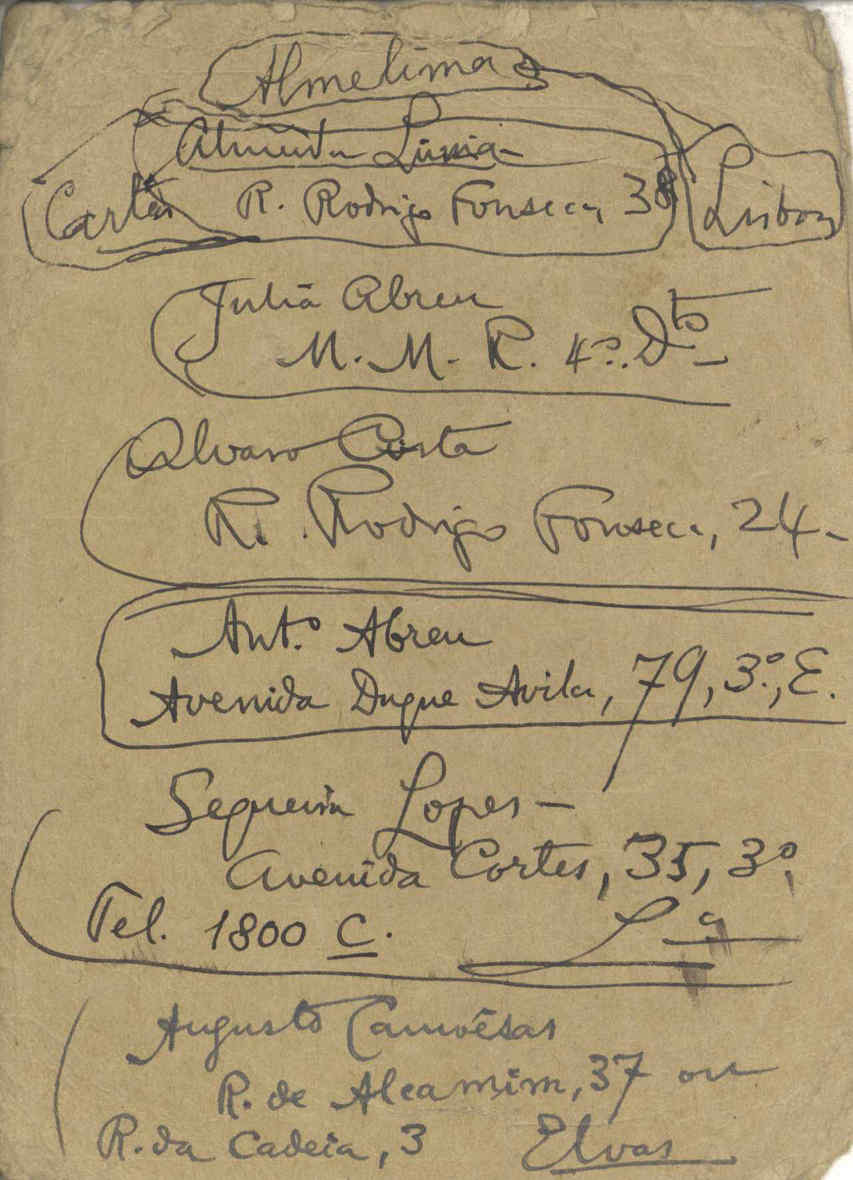 Almelima
Almeida Lima -
Cartas R. Rodrigo Fonseca, 38 Lisboa
Juliã Abreu
M. M. R. 4º. Dto
Alvaro Costa
R. Rodrigo Fonseca, 24 -
Ant.º Abreu
Avenida Duque Avila, 79, 3.º, E.
Sequeira Lopes -
Avenida Cortes, 35, 3º,
Tel. 1800 C. Lª
Augusto Camoêsas
R. de Alcamim, 37 ou
R. da Cadeia, 3 Elvas